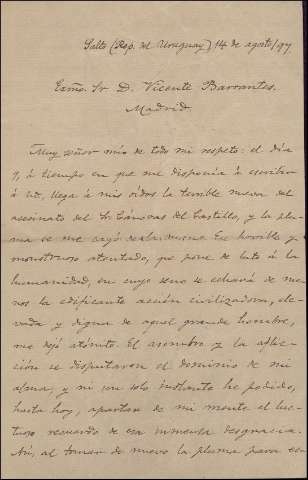 Salto (Rep. del Uruguay) 14 de agosto/97
Exmo. Sr. D. Vicente Barrantes.
Madrid.
Muy señor mío de todo mi respeto: el día
9, á tiempo en que me disponía á escribir
á Ud., llega á mis oídos la terrible nueva del
asesinato del Sr. Cánovas del Castillo, y la plu-
ma se me cayó de la mano. Ese horrible y
monstruoso atentado, que pone de luto á la
humanidad, en cuyo seno se echará de me-
nos la edificante acción civilizadora, ele-
vada y digna de aquel grande hombre,
me dejó atónito. El asombro y la aflic-
ción se disputaron el dominio de mi
alma; y ni un solo instante he podido,
hasta hoy, apartar de mi mente el luc-
tuoso recuerdo de esa inmensa desgracia.
Así, al tomar de nuevo la pluma para es-